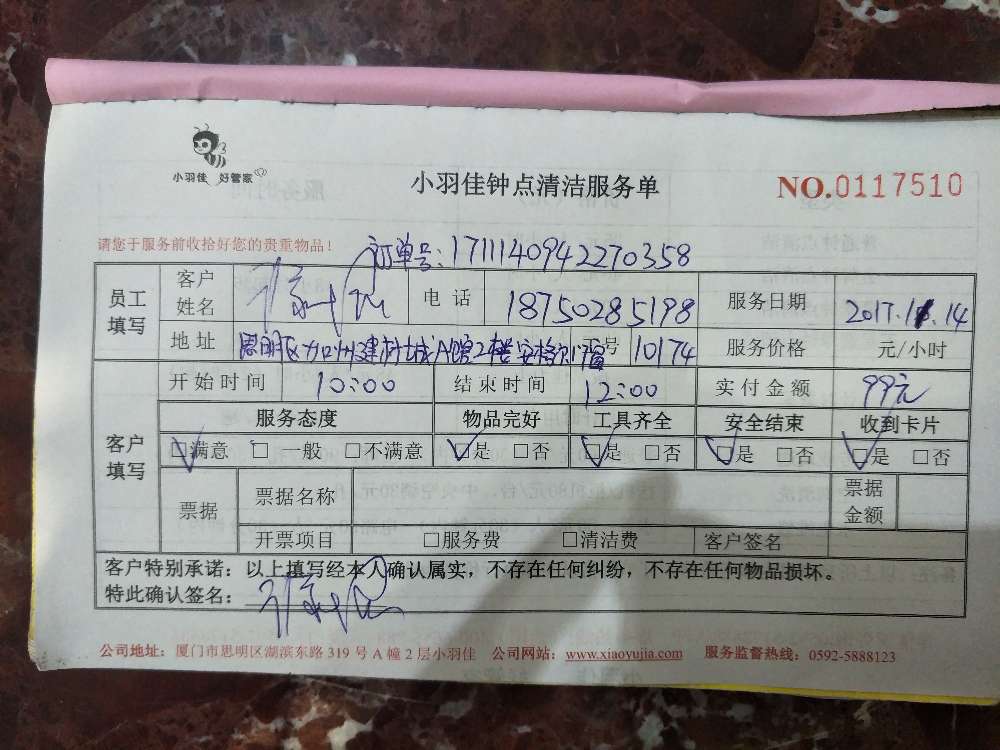 小羽佳 好管家
小羽佳钟点清洁服务单 NO.0117510
请您于服务前收拾好您的贵重物品！
订单号：1711140942270358
员工填写 客户姓名 电话 18750285198 服务日期 2017.11.14
地址 思明区加州建材城A馆2楼安格尔 号 10174 服务价格 元/小时
客户填写 开始时间 10:00 结束时间 12:00 实付金额 99元
服务态度 物品完好 工具齐全 安全结束 收到卡片
☑满意 □一般 □不满意 ☑是 □否 ☑是 □否 ☑是 □否 ☑是 □否
票据 票据名称 票据金额
开票项目 □服务费 □清洁费 客户签名
客户特别承诺：以上填写经本人确认属实，不存在任何纠纷，不存在任何物品损坏。
特此确认签名：
公司地址：厦门市思明区湖滨东路 319 号 A 幢 2 层小羽佳 公司网站：www.xiaoyujia.com 服务监督热线：0592-5888123